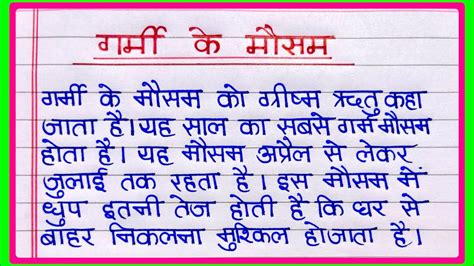 गर्मी के मौसम
गर्मी के मौसम को ग्रीष्म ऋतु कहा
जाता है। यह साल का सबसे गर्म मौसम
होता है। यह मौसम अप्रैल से लेकर
जुलाई तक रहता है। इस मौसम में
धुप इतनी तेज होती है कि घर से
बाहर निकलना मुश्किल हो जाता है।